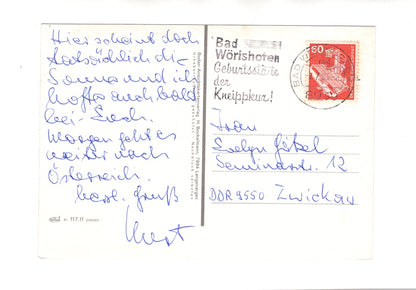 Hier scheint doch
tatsächlich die
Sonne und ich
hoffe auch bald
bei Euch.
Morgen geht es
weiter nach
Österreich.
herzl. Gruß
Kurt
117.11
Bad
Wörishofen
Geburtsstätte
der
Kneippkur!
60
BAD
Frau
Evelyn Göbel
Seminarstr. 12
DDR 9550 Zwickau